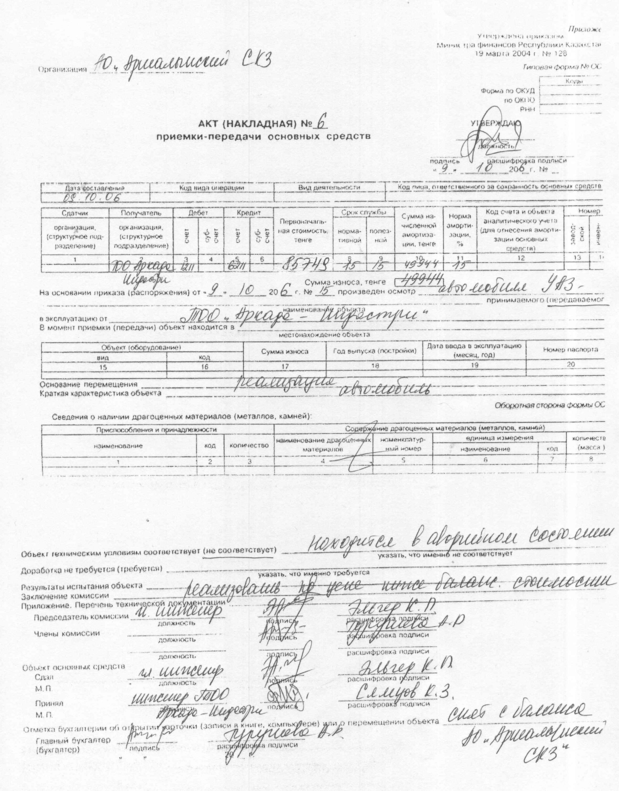 Приложе
Утверждена приказом
Министра финансов Республики Казахстан
19 марта 2004 г. № 126
Организация АО "Аркалыкский СКЗ
Типовая форма № ОС
Коды
Форма по ОКУД
по ОКПО
РНН
АКТ (НАКЛАДНАЯ) № 6
приемки-передачи основных средств
УТВЕРЖДАЮ
должность
подпись расшифровка подписи
"9" 10 2006 г. №
Дата составления Код вида операции Вид деятельности Код лица, ответственного за сохранность основных средств
09.10.06
Сдатчик Получатель Дебет Кредит Первоначаль- Срок службы Сумма на- Норма Код счета и объекта Номер
организация, (структурное под- разделение) организация, (структурное подразделение) счет суб- счет счет суб- счет ная стоимость, тенге норма- тивной полез- ной численной амортиза- ции, тенге аморти- зации, % аналитического учета (для отнесения аморти- зации основных средств)
1 3 4 6 11 12 13
85749 15 15 49944 15
Сумма износа, тенге 49944
На основании приказа (распоряжения) от "9" 10 2006 г. № 15 произведен осмотр автомобиль УАЗ-
наименование объекта принимаемого (передаваемог
в эксплуатацию от ТОО "Аркада - Индастри"
В момент приемки (передачи) объект находится в
местонахождение объекта
Объект (оборудование) Сумма износа Год выпуска (постройки) Дата ввода в эксплуатацию (месяц, год) Номер паспорта
вид код
15 16 17 18 19 20
Основание перемещения реализация
Краткая характеристика объекта автомобиль
Оборотная сторона формы ОС
Сведения о наличии драгоценных материалов (металлов, камней):
Приспособления и принадлежности Содержание драгоценных материалов (металлов, камней)
наименование код количество наименование драгоценных материалов номенклатур- ный номер единица измерения количеств (масса)
наименование код
1 2 3 4 5 6 7 8
Объект техническим условиям соответствует (не соответствует) находится в аварийном состоянии
указать, что именно не соответствует
Доработка не требуется (требуется)
указать, что именно требуется
Результаты испытания объекта
Заключение комиссии реализовать по цене ниже баланс. стоимости
Приложение. Перечень технической документации
Председатель комиссии гл. инженер Эльгер К.П.
должность подпись расшифровка подписи
Члены комиссии А.Р
должность подпись расшифровка подписи
должность подпись расшифровка подписи
Объект основных средств
Сдал гл. инженер Эльгер К.П.
должность подпись расшифровка подписи
М.П.
Принял инженер ТОО К.З.
Аркада-Индастри подпись расшифровка подписи
М.П.
Отметка бухгалтерии об открытии карточки (записи в книге, компьютере) или о перемещении объекта снят с баланса
Главный бухгалтер А.Р. АО "Аркалыкский
(бухгалтер) подпись расшифровка подписи СКЗ"